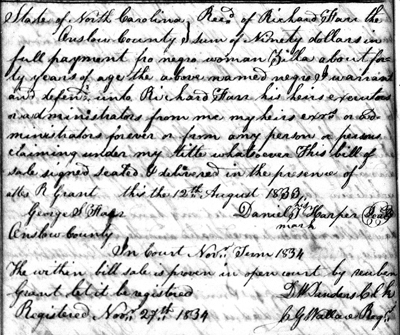 State of North Carolina Recd. of Richard Farr the
Onslow County sum of Ninety dollars in
full payment fro negro woman Zilla about for
ty years of age the above named negro I warrant
and defend unto Richard Farr his heirs executors
or administrators from me my heirs exrs. or ad
ministrators forever or from any person or persons
claiming under my title whatsoever This bill of
sale signed sealed & delivered in the presence of
R Grant this the 12th. August 1833
George Daniel his Harper Seal
Onslow County mark
In Court Novr. Term 1834
The within bill sale is proven in open court by reuben
Grant let it be registered D W Sanders Clk
Registered Novr. 27th. 1834 G Wallace Regr.